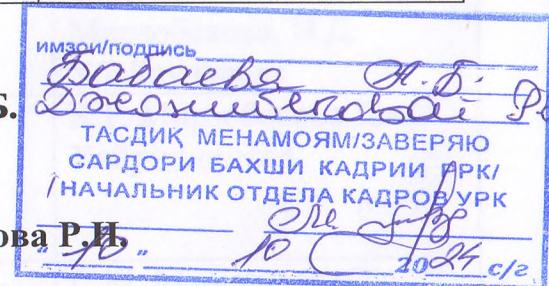 имзои/подпись
Бабаева Н.Б.
Б. Джонибековой Р.
ТАСДИҚ МЕНАМОЯМ/ЗАВЕРЯЮ
САРДОРИ БАХШИ КАДРИИ РРК/
НАЧАЛЬНИК ОТДЕЛА КАДРОВ УРК
ова Р.И.
"10" 10 2024 с/г